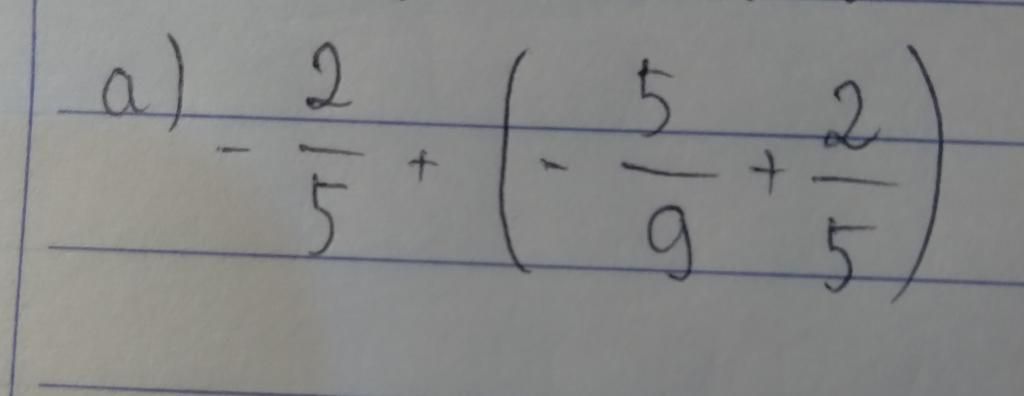 a) - 2/5 + ( - 5/9 + 2/5 )